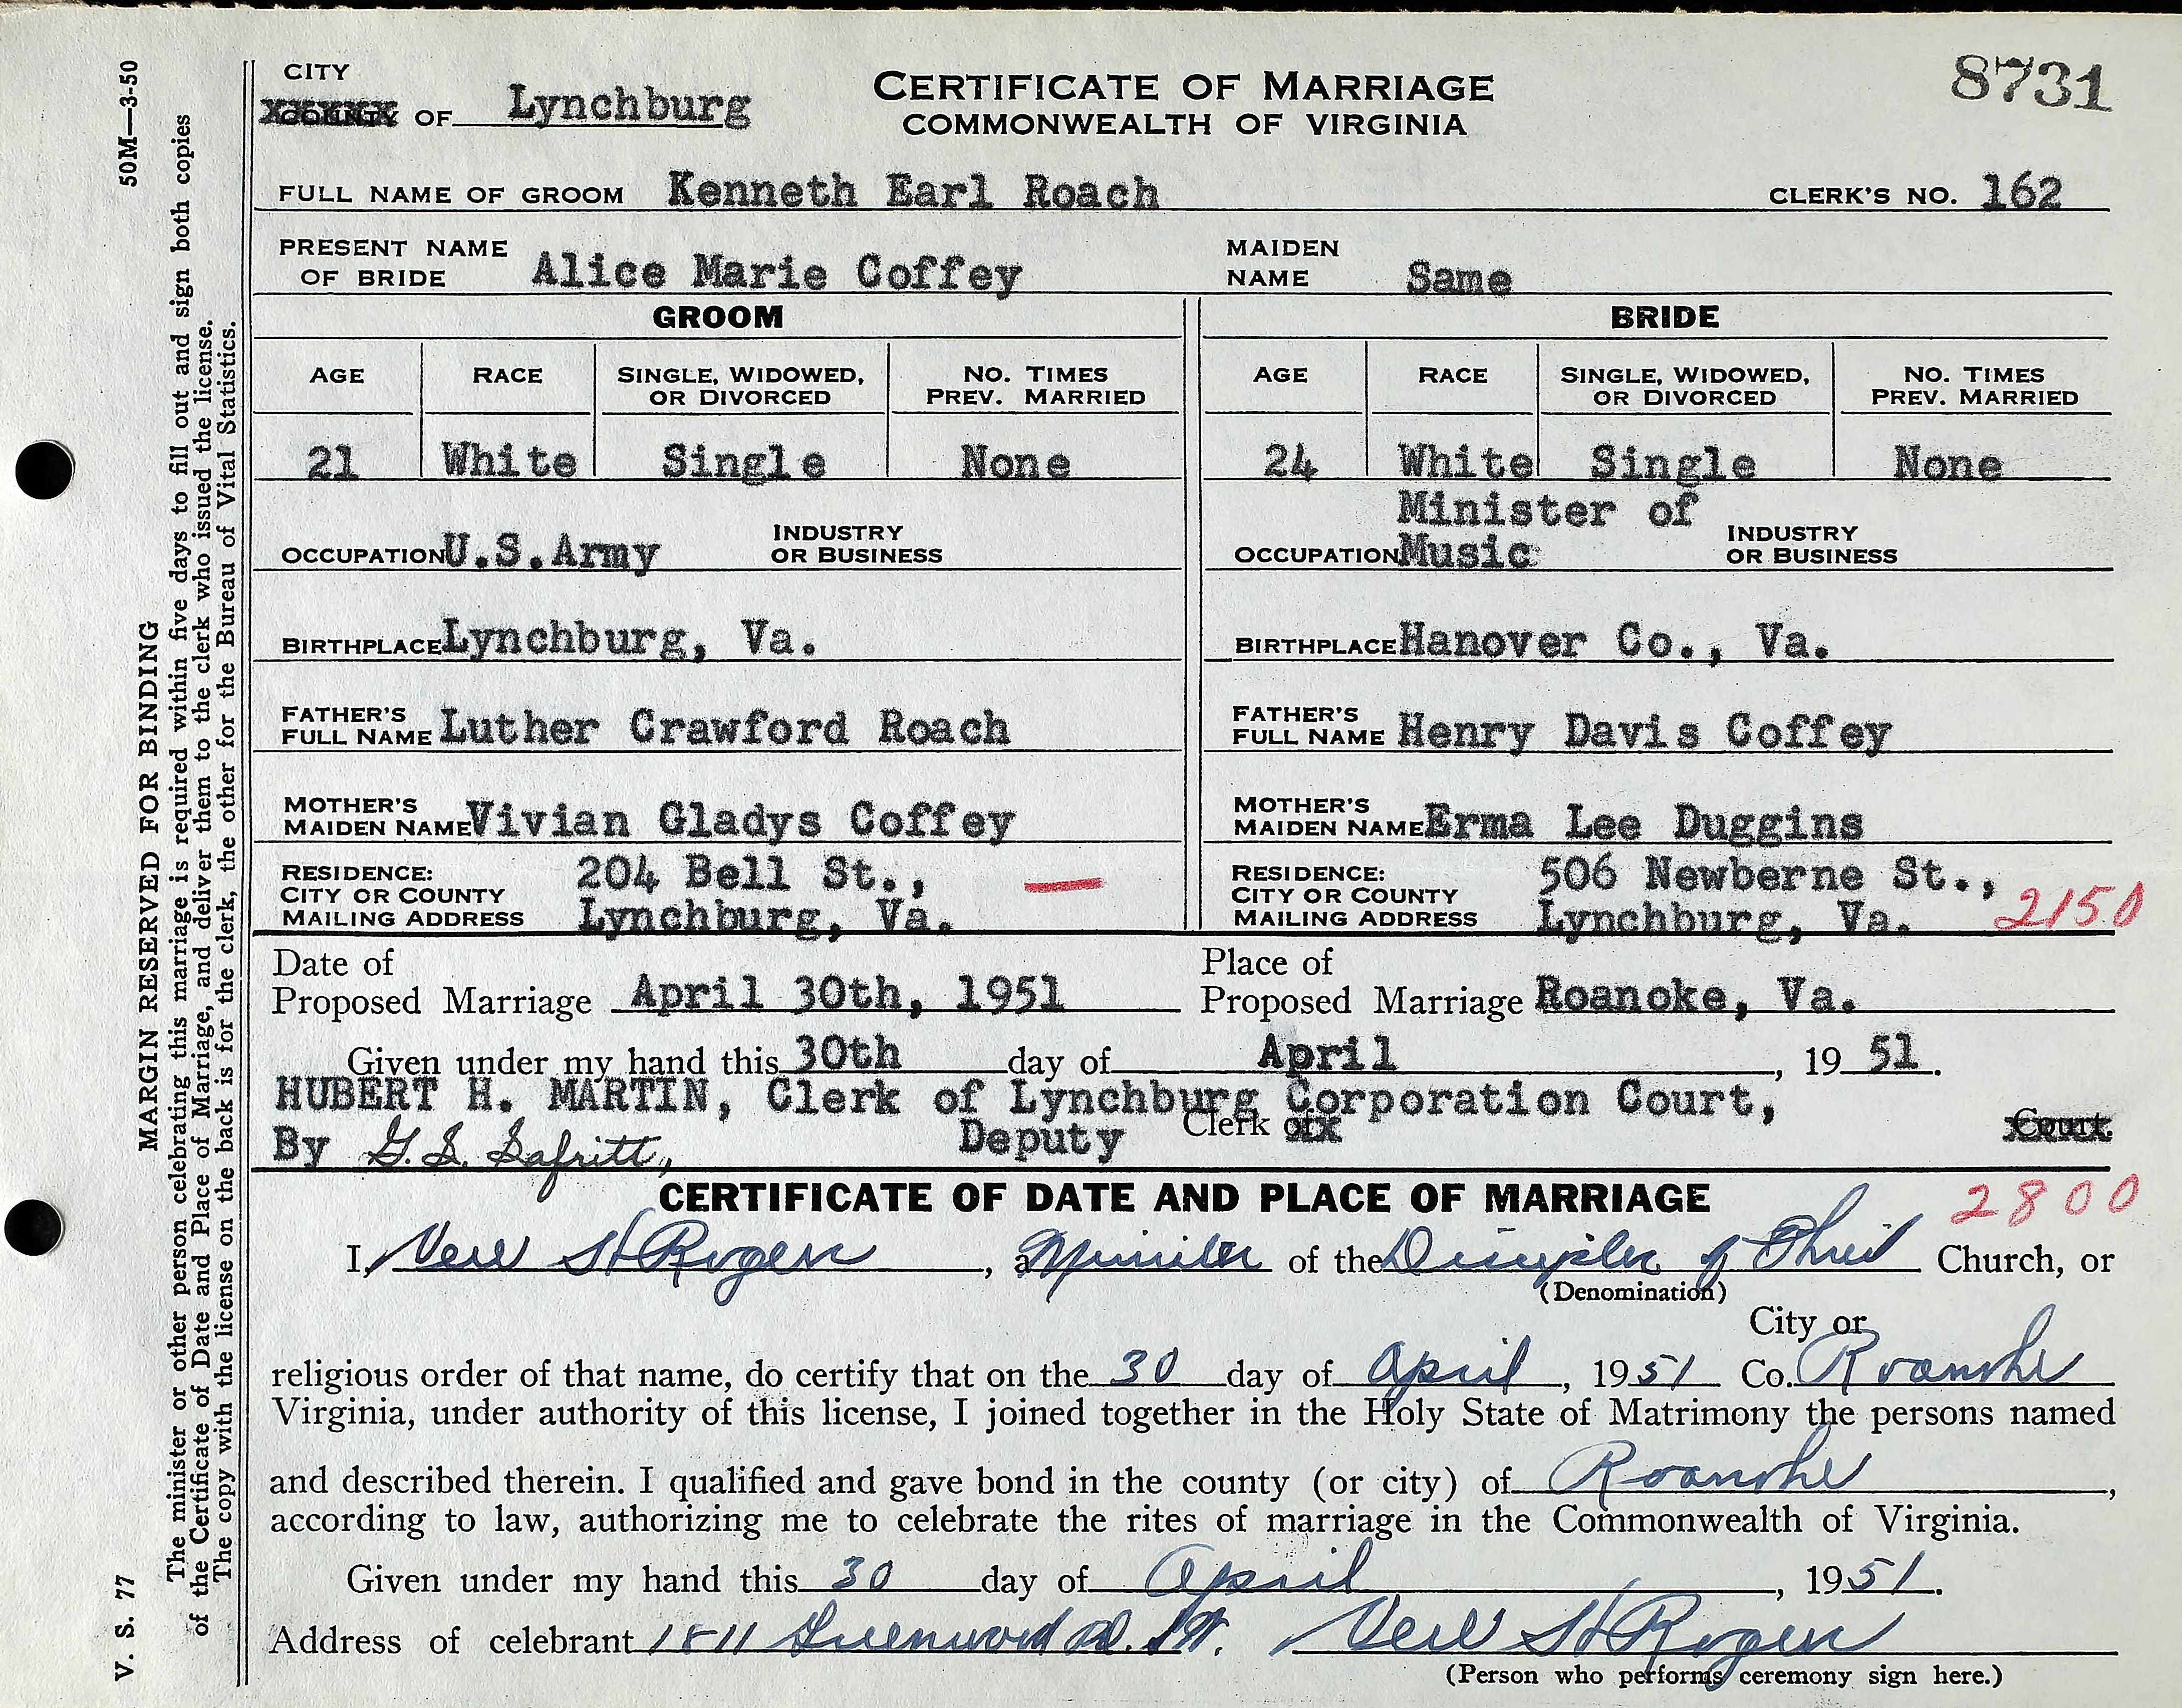 CITY
COUNTY OF Lynchburg
CERTIFICATE OF MARRIAGE
COMMONWEALTH OF VIRGINIA
8731
FULL NAME OF GROOM Kenneth Earl Roach CLERK'S NO. 162
PRESENT NAME OF BRIDE Alice Marie Coffey MAIDEN NAME Same
GROOM BRIDE
AGE RACE SINGLE, WIDOWED, OR DIVORCED NO. TIMES PREV. MARRIED AGE RACE SINGLE, WIDOWED, OR DIVORCED NO. TIMES PREV. MARRIED
21 White Single None 24 White Single None
OCCUPATION U.S.Army INDUSTRY OR BUSINESS OCCUPATION Minister of Music INDUSTRY OR BUSINESS
BIRTHPLACE Lynchburg, Va. BIRTHPLACE Hanover Co., Va.
FATHER'S FULL NAME Luther Crawford Roach FATHER'S FULL NAME Henry Davis Coffey
MOTHER'S MAIDEN NAME Vivian Gladys Coffey MOTHER'S MAIDEN NAME Erma Lee Duggins
RESIDENCE: CITY OR COUNTY MAILING ADDRESS 204 Bell St., Lynchburg, Va. — RESIDENCE: CITY OR COUNTY MAILING ADDRESS 506 Newberne St., Lynchburg, Va. 2150
Date of Proposed Marriage April 30th, 1951 Place of Proposed Marriage Roanoke, Va.
Given under my hand this 30th day of April, 19 51.
HUBERT H. MARTIN, Clerk of Lynchburg Corporation Court,
By G. S. Safritt, Deputy Clerk of Court.
CERTIFICATE OF DATE AND PLACE OF MARRIAGE 2800
I, Vere H Rogers, a Minister of the Disciples of Christ Church, or
(Denomination)
City or
religious order of that name, do certify that on the 30 day of April, 1951 Co. Roanoke
Virginia, under authority of this license, I joined together in the Holy State of Matrimony the persons named
and described therein. I qualified and gave bond in the county (or city) of Roanoke,
according to law, authorizing me to celebrate the rites of marriage in the Commonwealth of Virginia.
Given under my hand this 30 day of April, 1951.
Address of celebrant 1811 Greenwood Rd. S.W. Vere H Rogers
(Person who performs ceremony sign here.)
V. S. 77 50M—3-50
MARGIN RESERVED FOR BINDING
The minister or other person celebrating this marriage is required within five days to fill out and sign both copies
of the Certificate of Date and Place of Marriage, and deliver them to the clerk who issued the license.
The copy with the license on the back is for the clerk, the other for the Bureau of Vital Statistics.